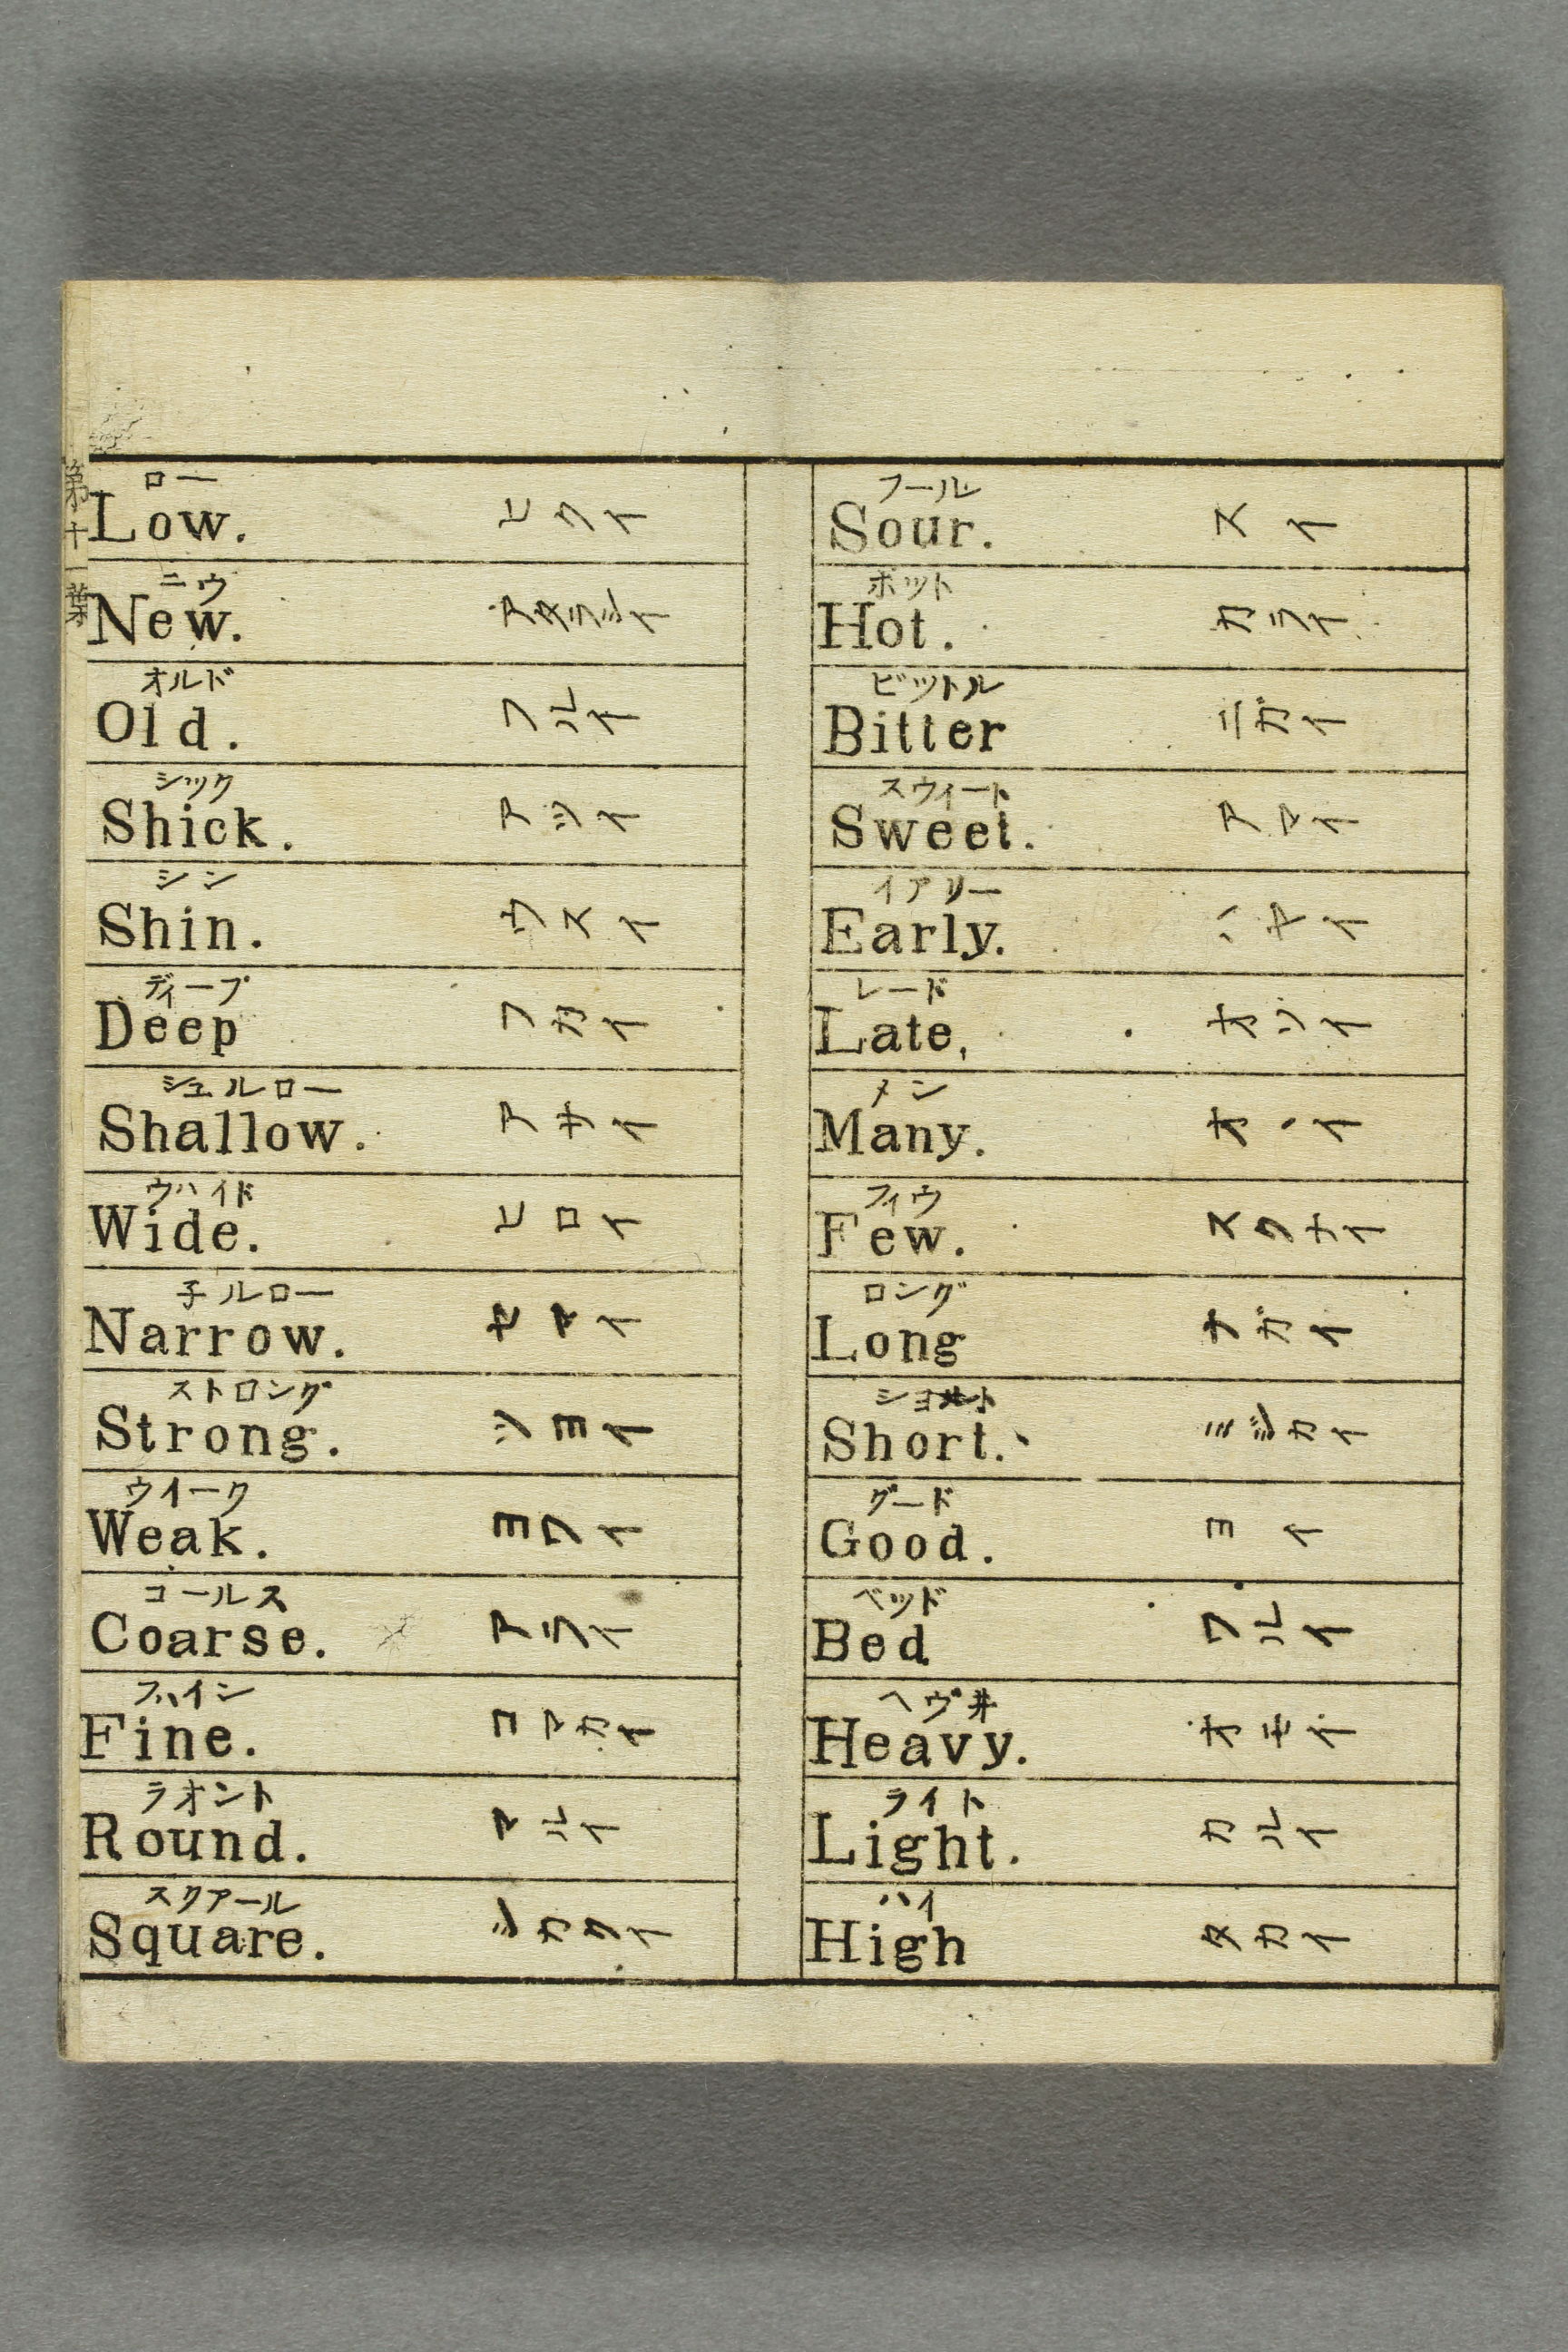 フール
Sour. スイ
ホット
Hot. カライ
ビツトル
Bitter ニガイ
スウィート
Sweet. アマイ
イアリー
Early. ハヤイ
レード
Late, オソイ
メン
Many. オヽイ
フィウ
Few. スクナイ
ロング
Long ナガイ
ショオト
Short. ミジカイ
グード
Good. ヨイ
ベッド
Bed ワルイ
ヘヴ井
Heavy. オモイ
ライト
Light. カルイ
ハイ
High タカイ
第十一葉
ロー
Low. ヒクイ
ニウ
New. アタラシイ
オルド
Old. フルイ
シック
Shick. アツイ
シン
Shin. ウスイ
ディープ
Deep フカイ
シェルロー
Shallow. アサイ
ウハイド
Wide. ヒロイ
子ルロー
Narrow. セマイ
ストロング
Strong. ツヨイ
ウイーク
Weak. ヨワイ
コールス
Coarse. アライ
フハイン
Fine. コマカイ
ラオント
Round. マルイ
スクアール
Square. シカクイ